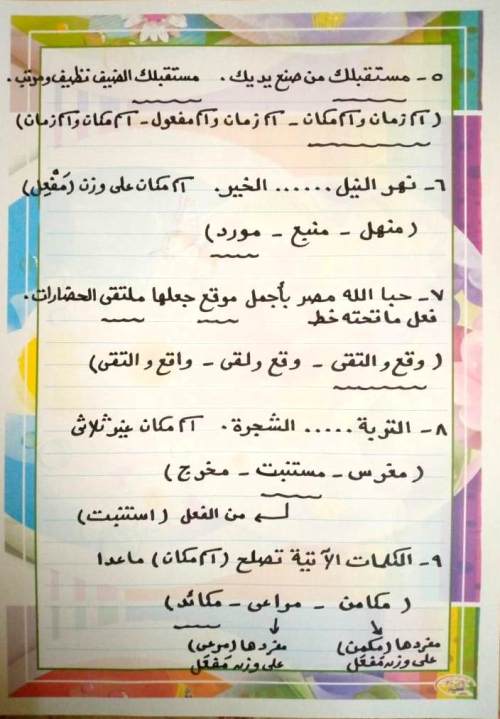 ٥- مستقبلك من صنع يديك. مستقبلك الضيف نظيف ومرتب.
(اسم زمان واسم مكان - اسم زمان واسم مفعول - اسم مكان واسم زمان)
٦- نهر النيل ...... الخير. اسم مكان على وزن (مَفْعِل)
(منهل - منبع - مورد)
٧- حبا الله مصر بأجمل موقع جعلها ملتقى الحضارات.
فعل ما تحته خط
(وقع والتقى - وقع ولقى - واقع والتقى)
٨- التربة ..... الشجرة. اسم مكان غير ثلاثى
(مغرس - مستنبت - مخرج)
من الفعل (استنبت)
٩- الكلمات الآتية تصلح (اسم مكان) ماعدا
(مكامن - مراعى - مكائد)
مفردها (مكمن) مفردها (مرعى)
على وزن مَفْعَل على وزن مَفْعَل